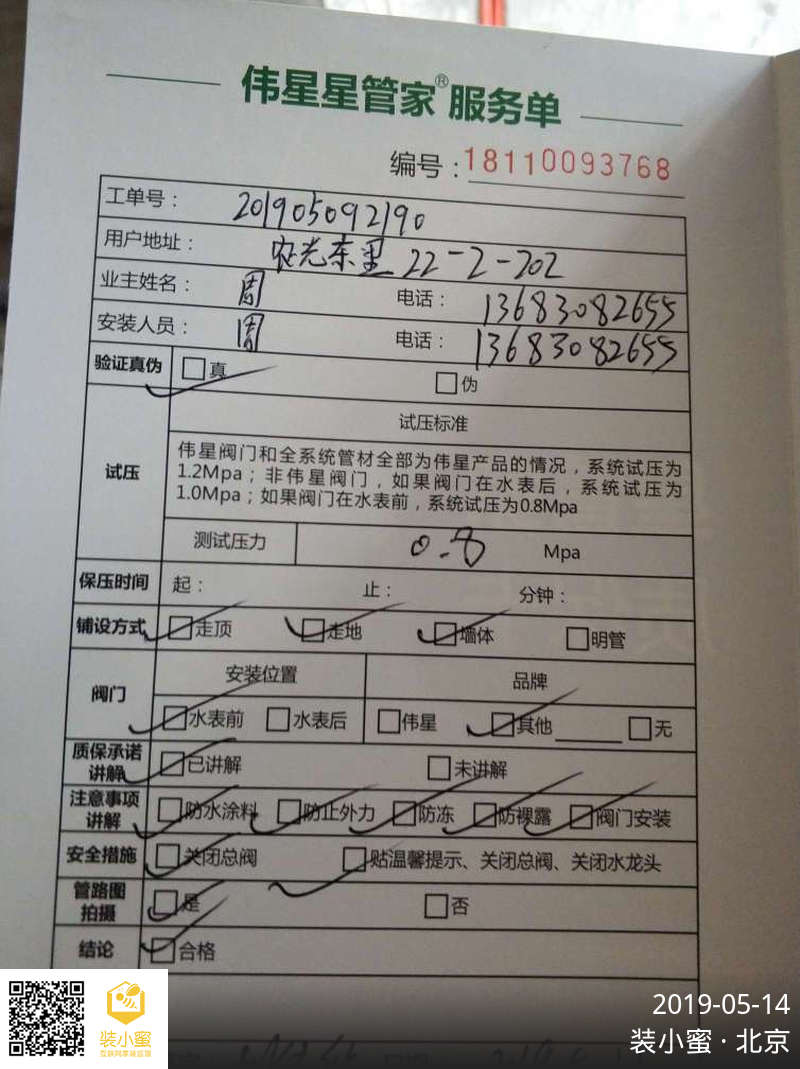 伟星星管家®服务单
编号：18110093768
工单号： 201905092190
用户地址： 农光东里 22-2-202
业主姓名： 周 电话： 13683082655
安装人员： 周 电话： 13683082655
验证真伪 □真 □伪
试压 试压标准
伟星阀门和全系统管材全部为伟星产品的情况，系统试压为
1.2Mpa；非伟星阀门，如果阀门在水表后，系统试压为
1.0Mpa；如果阀门在水表前，系统试压为0.8Mpa
测试压力 0.8 Mpa
保压时间 起： 止： 分钟：
铺设方式 □走顶 □走地 □墙体 □明管
阀门 安装位置 品牌
□水表前 □水表后 □伟星 □其他 □无
质保承诺
讲解 □已讲解 □未讲解
注意事项
讲解 □防水涂料 □防止外力 □防冻 □防裸露 □阀门安装
安全措施 □关闭总阀 □贴温馨提示、关闭总阀、关闭水龙头
管路图
拍摄 □是 □否
结论 □合格
装小蜜
互联网家装监理
2019-05-14
装小蜜·北京